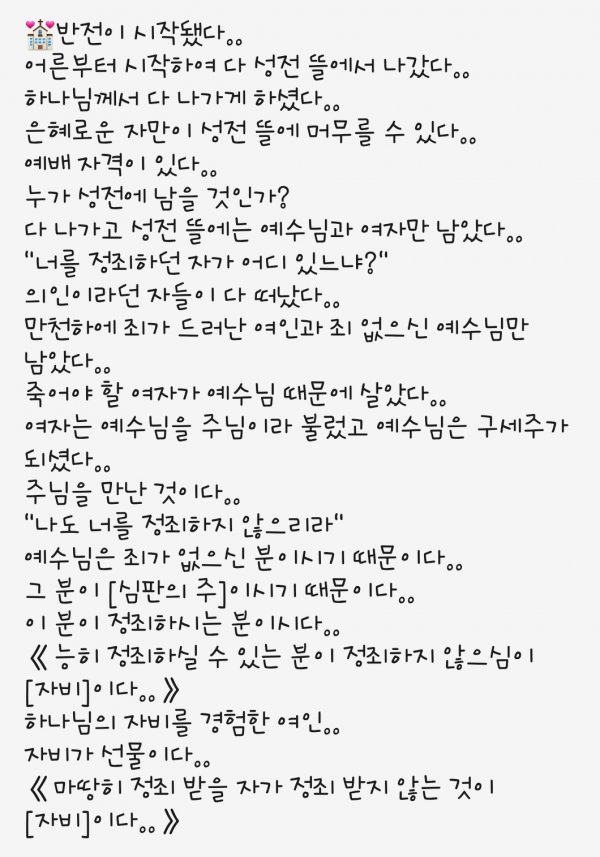 💒반전이 시작됐다。。
어른부터 시작하여 다 성전 뜰에서 나갔다。。
하나님께서 다 나가게 하셨다。。
은혜로운 자만이 성전 뜰에 머무를 수 있다。。
예배 자격이 있다。。
누가 성전에 남을 것인가?
다 나가고 성전 뜰에는 예수님과 여자만 남았다。。
"너를 정죄하던 자가 어디 있느냐?"
의인이라던 자들이 다 떠났다。。
만천하에 죄가 드러난 여인과 죄 없으신 예수님만
남았다。。
죽어야 할 여자가 예수님 때문에 살았다。。
여자는 예수님을 주님이라 불렀고 예수님은 구세주가
되셨다。。
주님을 만난 것이다。。
"나도 너를 정죄하지 않으리라"
예수님은 죄가 없으신 분이시기 때문이다。。
그 분이 [심판의 주]이시기 때문이다。。
이 분이 정죄하시는 분이시다。。
《 능히 정죄하실 수 있는 분이 정죄하지 않으심이
[자비]이다。。》
하나님의 자비를 경험한 여인。。
자비가 선물이다。。
《 마땅히 정죄 받을 자가 정죄 받지 않는 것이
[자비]이다。。》